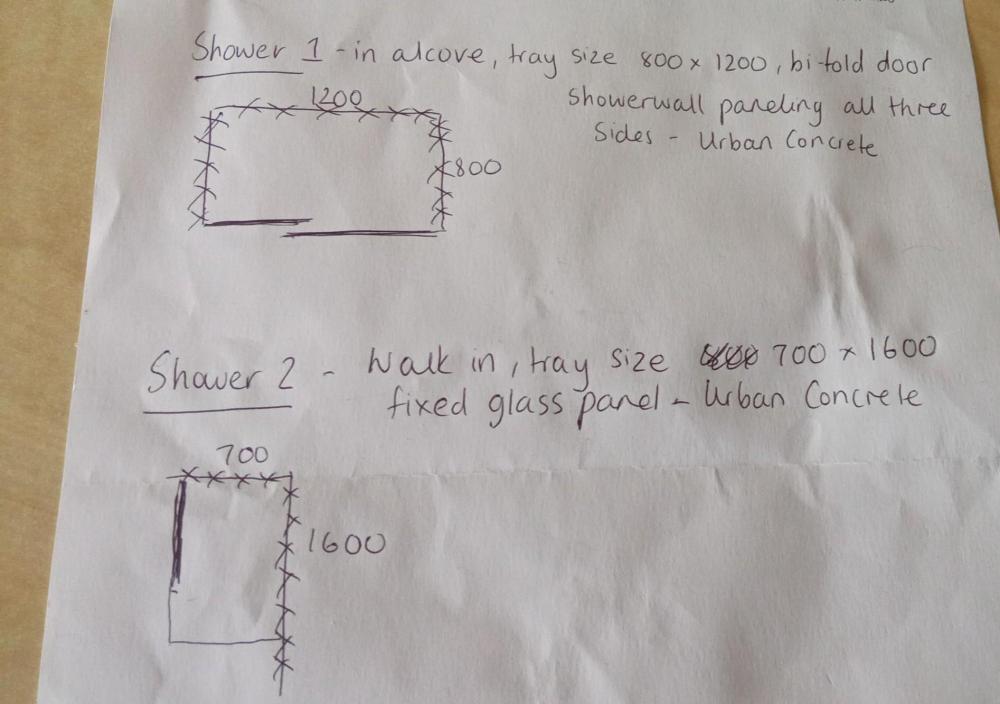 Shower 1 - in alcove, tray size 800 x 1200, bi fold door
Showerwall paneling all three
Sides - Urban Concrete
1200
800
Shower 2 - Walk in, tray size 700 x 1600
fixed glass panel - Urban Concrete
700
1600